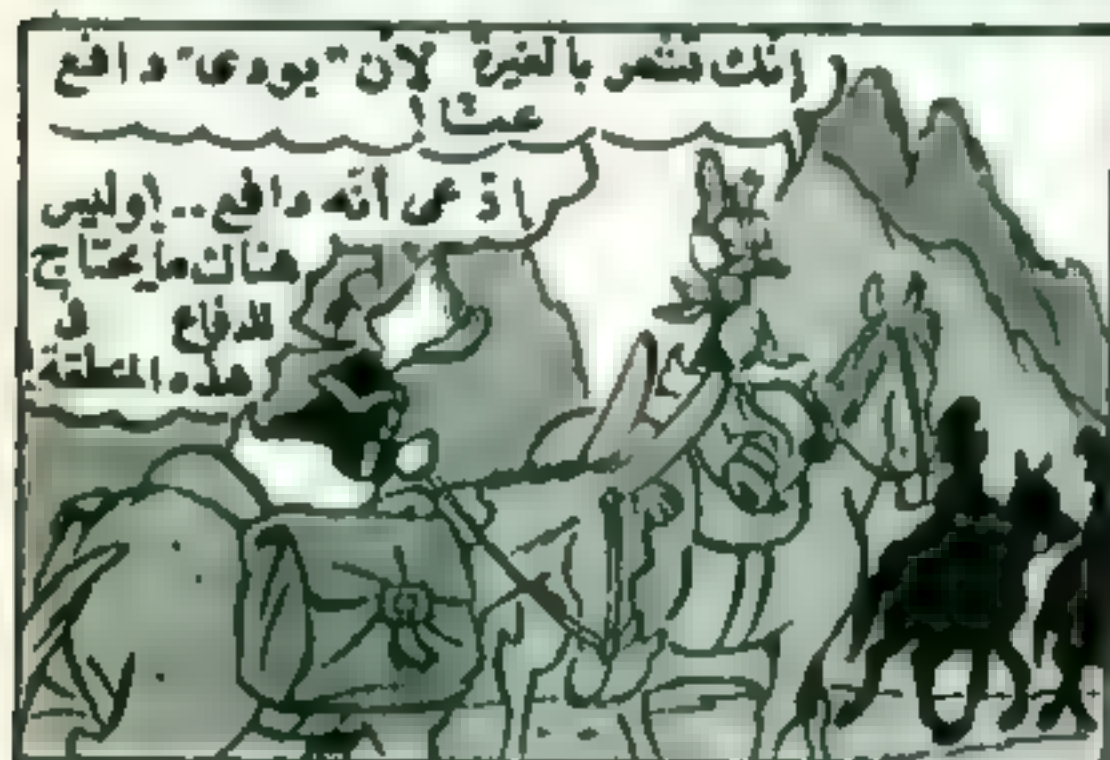 إنك تشعر بالغيرة لأن "بودى" دافع
عنّا!
ادّعى أنّه دافع.. أوليس
هناك ما يحتاج
للدفاع فى
هذه المنطقة